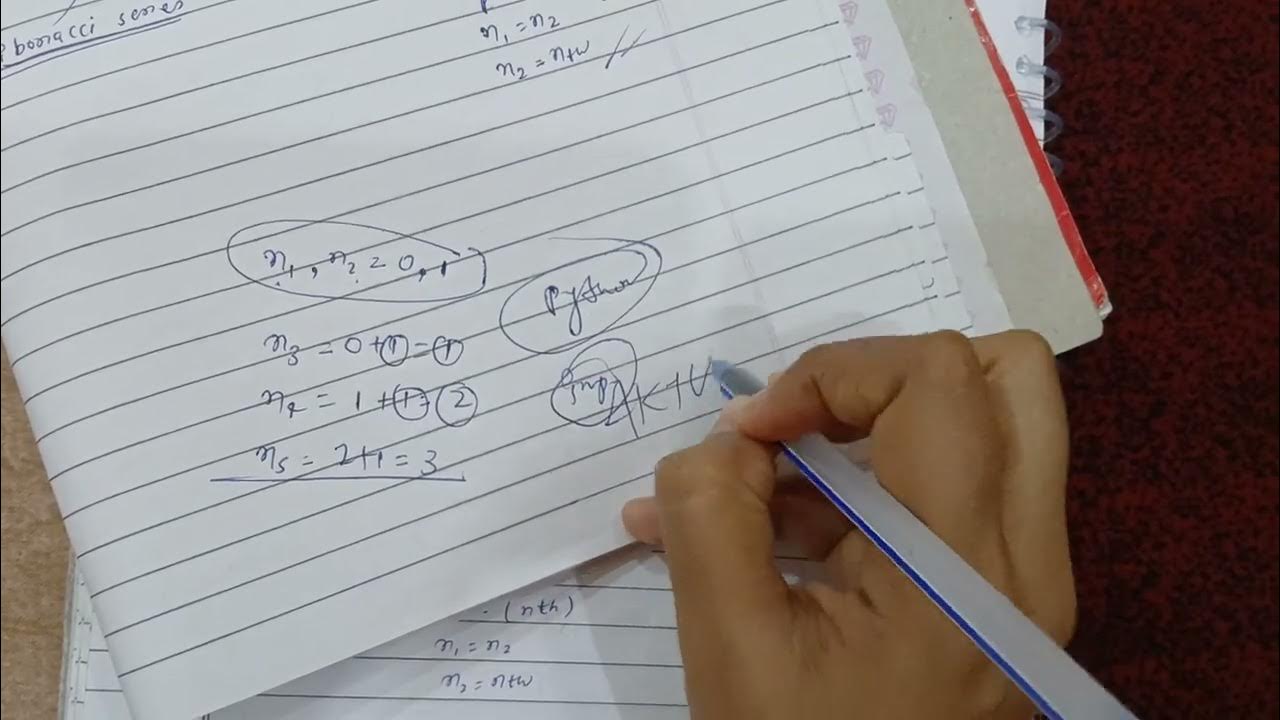 bonacci series
n1 = n2
n2 = nth
n1, n2 = 0, 1
Python
n3 = 0+1=1
n4 = 1+1=2
Imp
AKTU
n5 = 2+1 = 3
(nth)
n1 = n2
n2 = nth